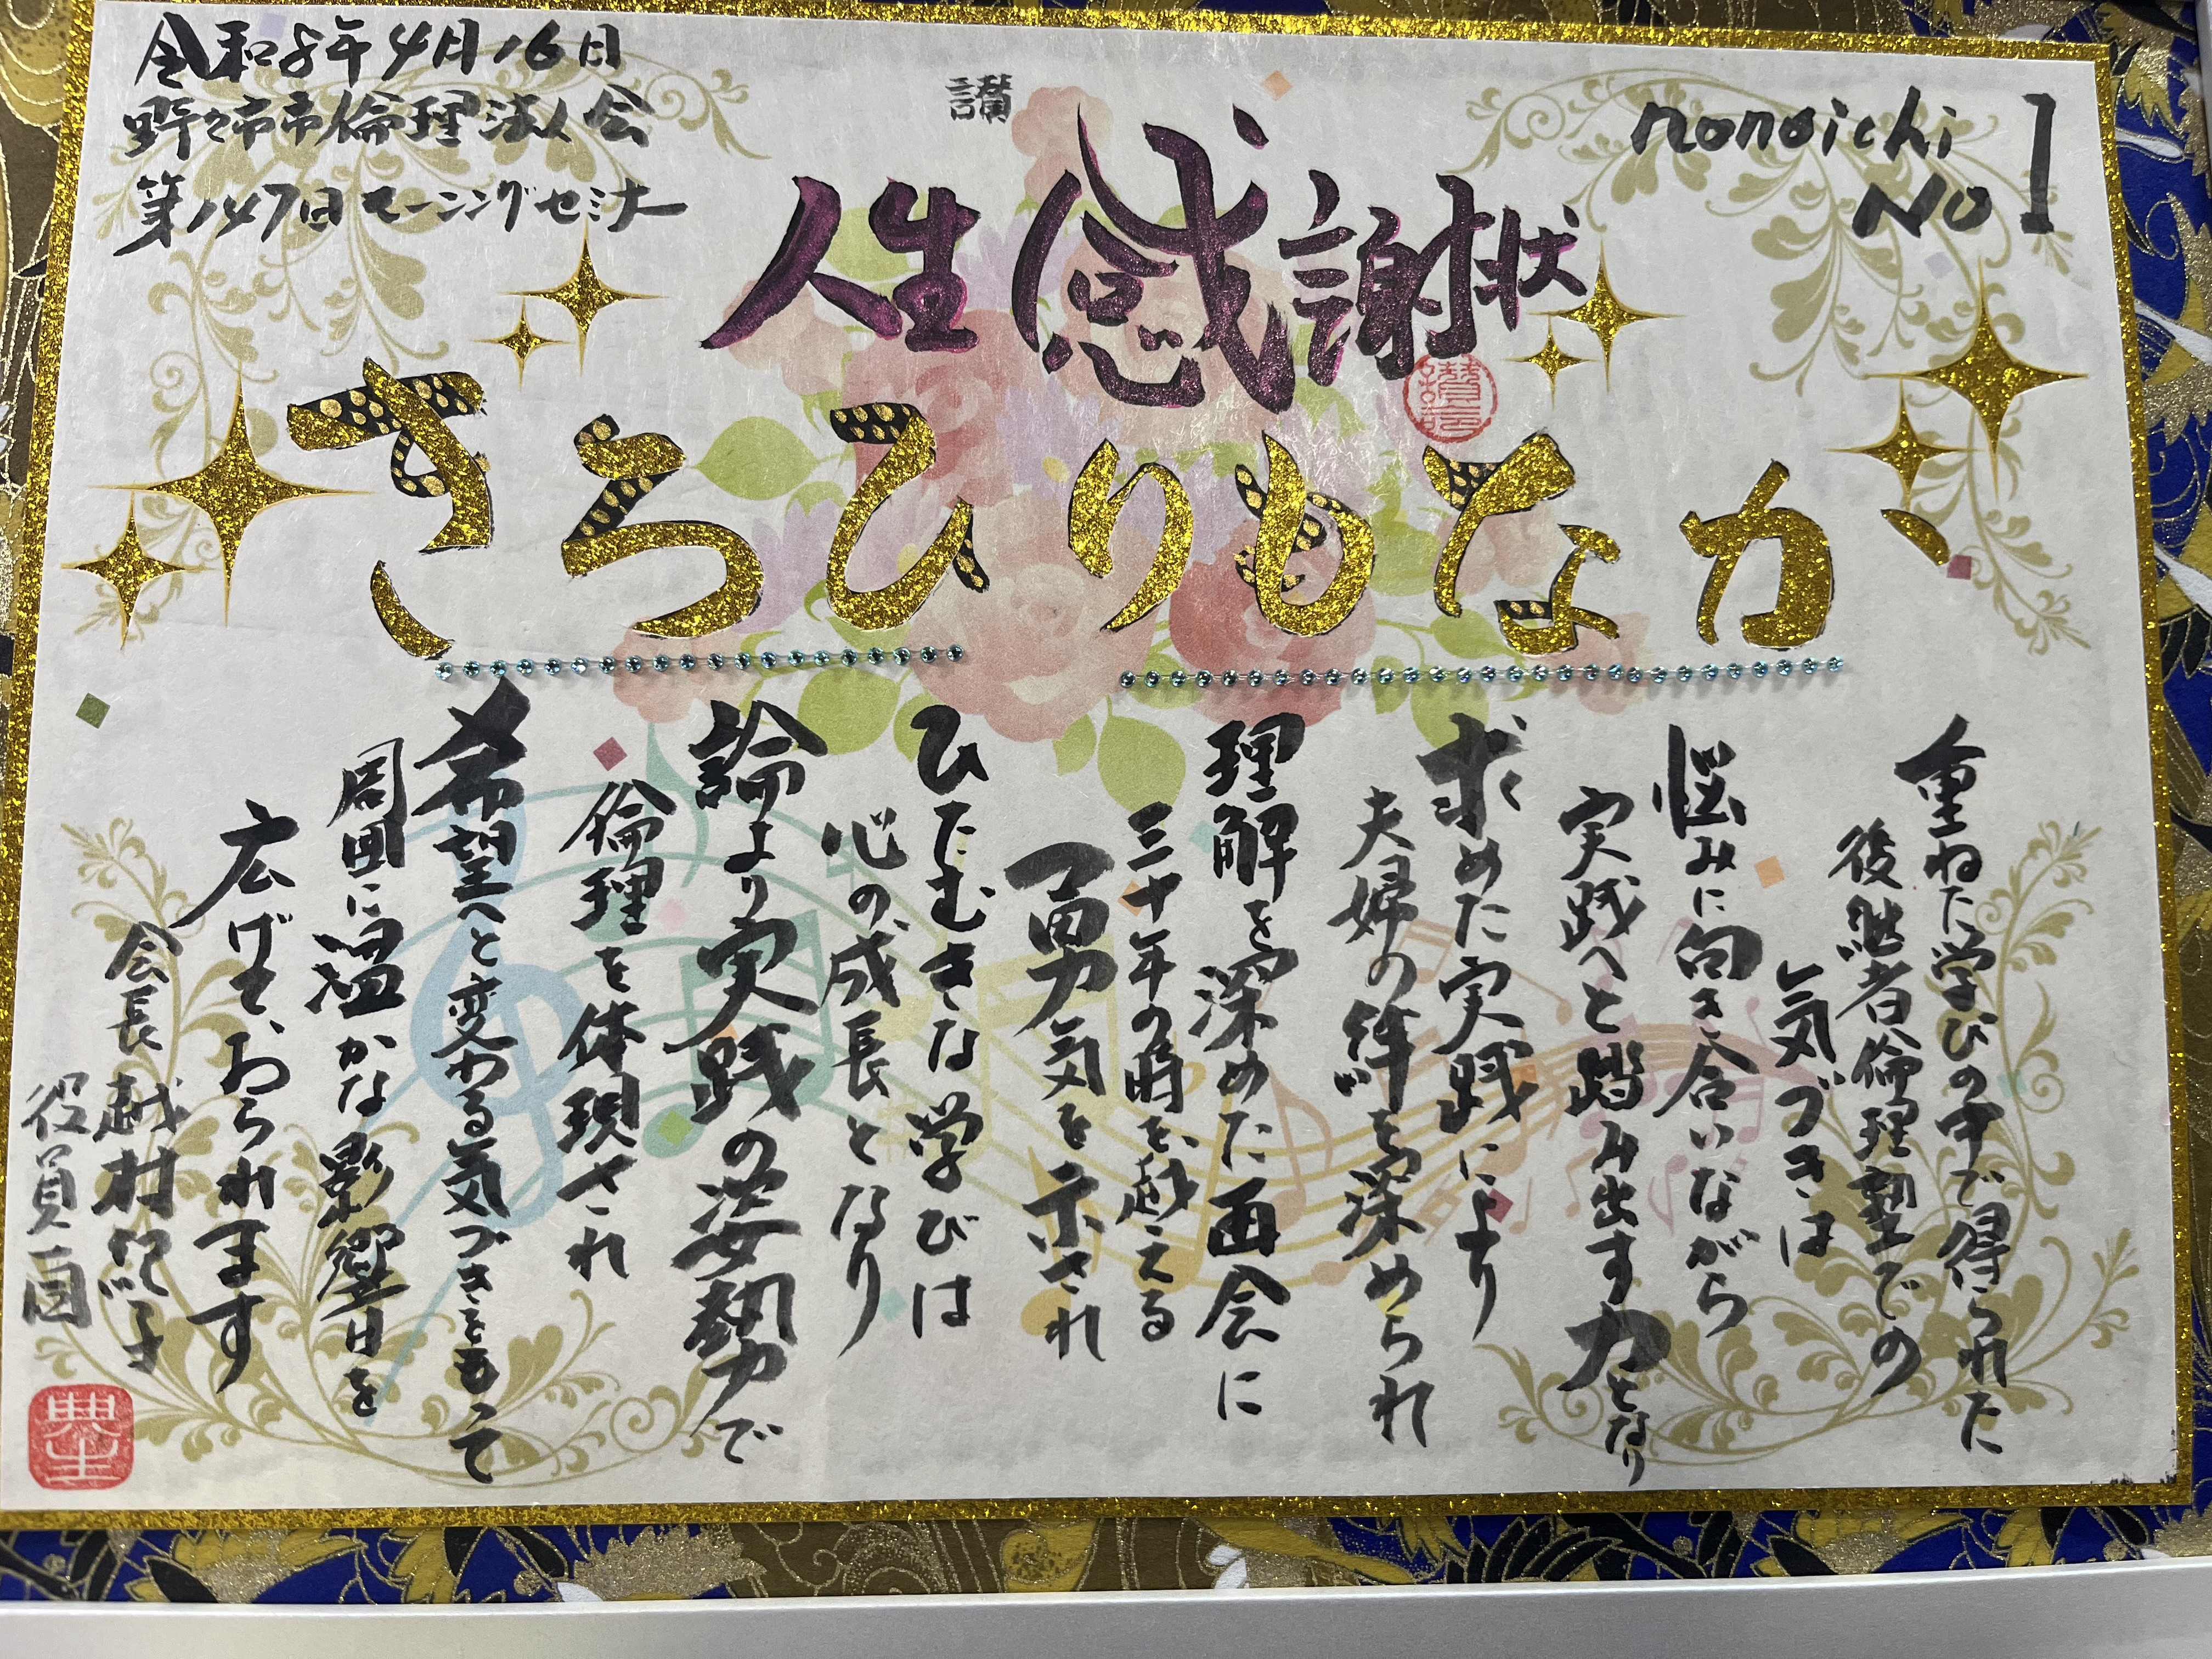 令和8年4月16日
野々市市倫理法人会
第147回モーニングセミナー
讃
nonoichi
No 1
人生感謝状
かなもりひろき
重ねた学びの中で得られた
後継者倫理塾での
気づきは
悩みに向き合いながら
実践へと踏み出す力となり
求めた実践により
夫婦の絆を深められ
理解を深めた面会に
三十年の時を越える
勇気を示され
ひたむきな学びは
心の成長となり
論より実践の姿勢で
倫理を体現され
希望へと変わる気づきをもって
周囲に温かな影響を
広げておられます
会長 越村
役員一同